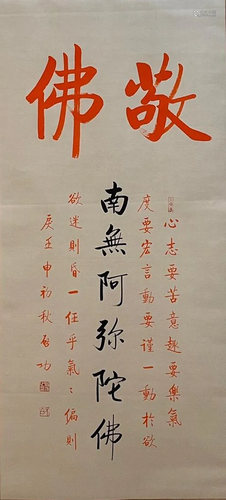 敬佛
心志要苦意趣要樂氣
度要宏言動要謹一動於欲
南無阿弥陀佛
欲迷則昏一任乎氣〻偏則
戾壬申初秋启功